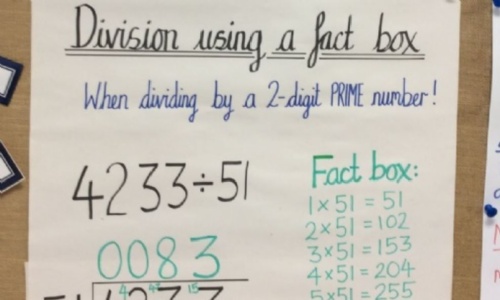 Division using a fact box
When dividing by a 2-digit PRIME number!
4233÷51
Fact box:
1x51 = 51
2x51 = 102
3x51 = 153
4x51 = 204
5x51 = 255
0083